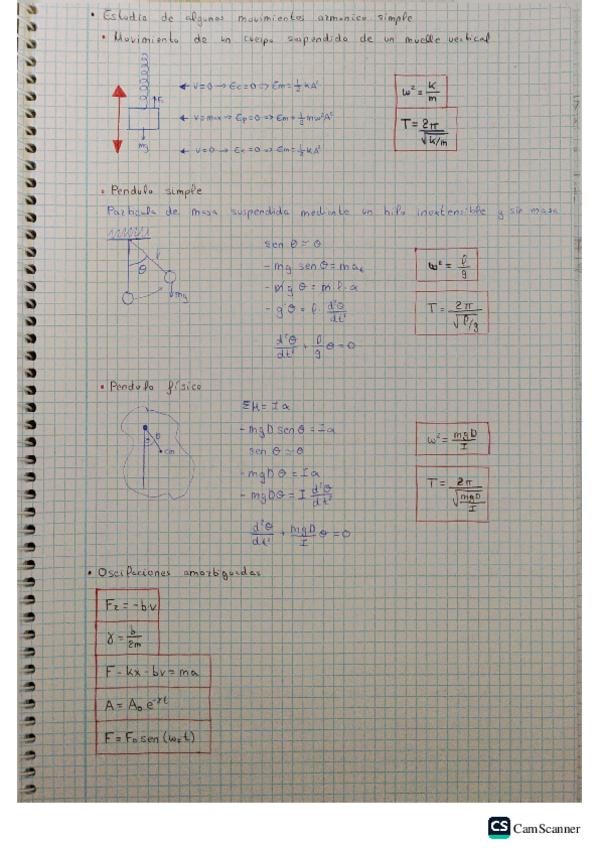 • Estudio de algunos movimientos armonico simple
• Movimiento de un cuerpo suspendido de un muelle vertical
← v=0 → Ec=0 ⇒ Em=½kA²
← v=max ⇒ Ep=0 ⇒ Em=½mω²A²
← v=0 → Ec=0 ⇒ Em=½kA²
mg
ω² = k/m
T = 2π/√(k/m)
• Pendulo simple
Particula de masa suspendida mediante un hilo inextensible y sin masa
θ
mg
sen θ ≈ θ
-mg sen θ = ma
-mg θ = m l · a
-g θ = l · d²θ/dt²
d²θ/dt² + l/g θ = 0
ω² = l/g
T = 2π/√(l/g)
• Pendulo físico
θ
cm
ΣM = Ia
-mgD sen θ = Ia
sen θ ≈ θ
-mgDθ = Ia
-mgDθ = I d²θ/dt²
d²θ/dt² + mgD/I θ = 0
ω² = mgD/I
T = 2π/√(mgD/I)
• Oscilaciones amortiguadas
Fr = -bv
γ = b/2m
F - kx - bv = ma
A = A₀ e^-γt
F = F₀ sen (ωₑ t)
CS CamScanner